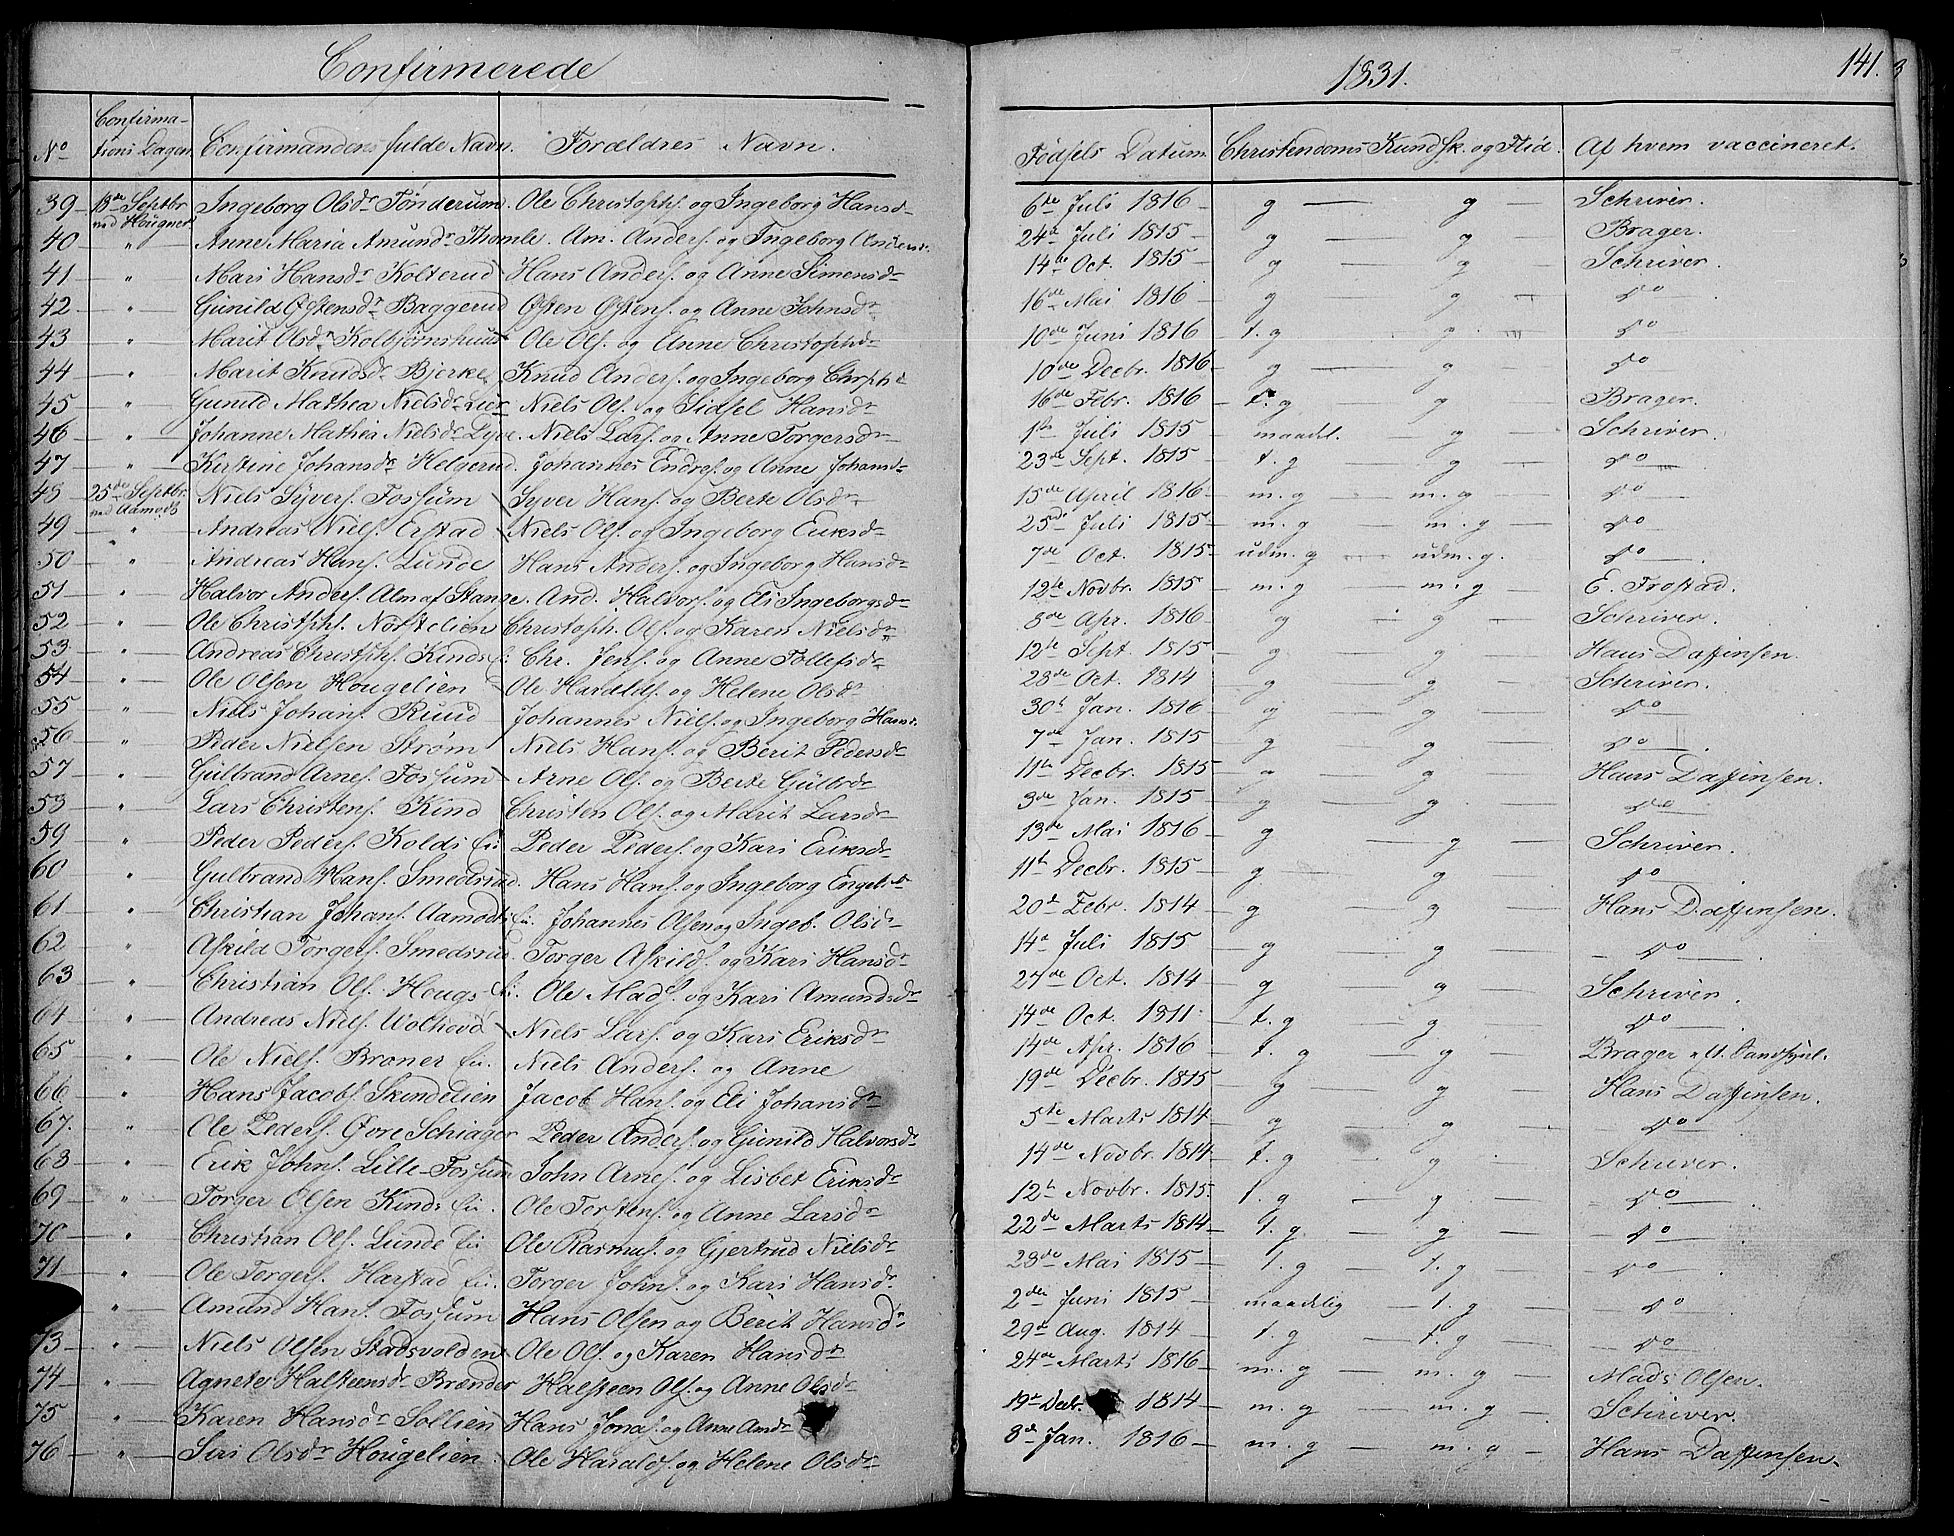 Confirmerede 1831. 141.
No Confirmationsdagen Confirmandens fulde Navn. Forældres Navn. Fødsels Datum Christendoms Kundsk. og Flid. Af hvem vaccineret.
39 18de Septbr. ved Hougner Ingeborg Olsdr Tønderum. Ole Christoph. og Ingeborg Hansd. 6te Juli 1816 g g Schriver.
40 " Anne Maria Amundr Thomle. Am. Anders. og Ingeborg Andersd. 24de Juli 1815 g g Brager.
41 " Mari Hansdr Kolterud Hans Anders. og Anne Simensdr 14de Oct. 1815 g g Schriver.
42 " Gunild Østensdr Baggerud Østen Østens. og Anne Johnsdr 16de Mai 1816 g g do
43 " Marit Olsdr Kolbjørnshuus Ole Ols. og Anne Christophdr 10de Juni 1816 t. g g do
44 " Marit Knudsdr Bjerke Knud Anders. og Ingeborg Chrph. 10de Decbr. 1816 g g do
45 " Gunild Mathea Nielsdr Lier Niels Ols. og Sidsel Hansdr 16de Febr. 1816 t. g g Brager.
46 " Johanne Mathea Nielsdr Lyve. Niels Lars. og Anne Torgersdr 1ste Juli 1815 maadel. g Schriver.
47 " Kirstine Johansdr Helgerud. Johannes Endres. og Anne Johansd. 23de Sept. 1815 t. g g do
48 25de Septbr. ved Aamodt Niels Syvers. Fossum Syver Hans. og Berte Olsdr 15de April 1816 m. g m. g do
49 " Andreas Niels. Erstad Niels Ols. og Ingeborg Eriksdr 25de Juli 1815 m. g m. g do
50 " Andreas Hans. Lunde Hans Anders. og Ingeborg Hansdr 7de Oct. 1815 udm. g udm. g. do
51 " Halvor Anders. Alm af Stange. And. Halvors. og Eli Ingeborgsdr 12te Novbr. 1815 m. g m. g E. Frostad.
52 " Ole Christoph. Nordtelien Christoph. Ols. og Karen Nielsdr 8de Apr. 1816 g g Schriver.
53 " Andreas Christoph. Kinds ei. Chr. Jens. og Anne Tollefsdr 12te Sept. 1815 g g Hans Daffinsen.
54 " Ole Olsen Hougelien Ole Haralds. og Helene Olsdr 28de Oct. 1814 g g Schriver.
55 " Niels Johans. Ruud Johannes Niels. og Ingeborg Hansd. 30te Jan. 1816 g g do
56 " Peder Nielsen Strøm Niels Hans. og Berit Pedersdr 7de Jan. 1815 g g do
57 " Gulbrand Arnes. Fossum Arne Ols. og Berte Gulbrdr 11te Decbr. 1815 g g Hans Daffinsen.
58 " Lars Christens. Kind Christen Ols. og Marit Larsdr 3de Jan. 1815 g g do
59 " Peder Peders. Kolds ei. Peder Peders. og Kari Eriksdr 13de Mai 1816 g g Schriver.
60 " Gulbrand Hans. Smedsrud. Hans Hans. og Ingeborg Engeb.dr 11te Decbr. 1815 g g do
61 " Christian Johans. Aamodts ei. Johannes Olsen og Ingeb. Olsdr 20de Febr. 1814 g g Hans Daffinsen.
62 " Askild Torgers. Smedsrud. Torger Askilds. og Kari Hansdr 14de Juli 1815 g g do
63 " Christian Ols. Hougs ei. Ole Mads. og Kari Amundsdr 27de Oct. 1814 g g Schriver.
64 " Andreas Niels. Wolhovd Niels Lars. og Kari Eriksdr 14de Oct. 1811 t. g g do
65 " Ole Niels. Braner ei. Niels Anders. og Anne 14de Apr. 1816 t. g g Brager
66 " Hans Jacobs. Skindelien Jacob Hans. og Eli Johansdr 19de Decbr. 1815 g g Hans Daffinsen.
67. " Ole Peders. Øvre Schiager Peder Anders. og Gunild Halvorsdr 5te Marts 1814 g g do
68 " Erik Johns. Lille-Fossum John Arnes. og Lisbet Eriksdr 14de Novbr. 1814 t. g g Schriver.
69 " Torger Olsen Kinds ei. Ole Torstens. og Anne Larsdr 12te Novbr. 1815 t. g g do
70 " Christian Ols. Lunde ei Ole Rasmus. og Gjertrud Nielsdr 22de Marts 1814 t. g g do
71 " Ole Torgers. Harstad ei. Torger Johns. og Kari Hansdr 23de Mai 1815 t. g t. g do
" Amund Hans. Fossum Hans Olsen og Berit Hansdr 2den Juni 1815 maadelig t. g do
73 " Niels Olsen Stadsvolden Ole Ols. og Karen Hansdr 29de Aug. 1814 t. g t. g do
74 " Agnete Halsteensdr Brænder Halsteen Ols. og Anne Olsdr 24de Marts 1816 m. g m. g Mads Olsen.
75 " Karen Hansdr Sollien Hans Jonas. og Anne Amdr 19de Decbr. 1814 m. g m. g Schriver.
76 " Siri Olsdr Hougelien Ole Haralds. og Helene Olsdr 8de Jan. 1816 m. g m. g Hans Daffinsen.